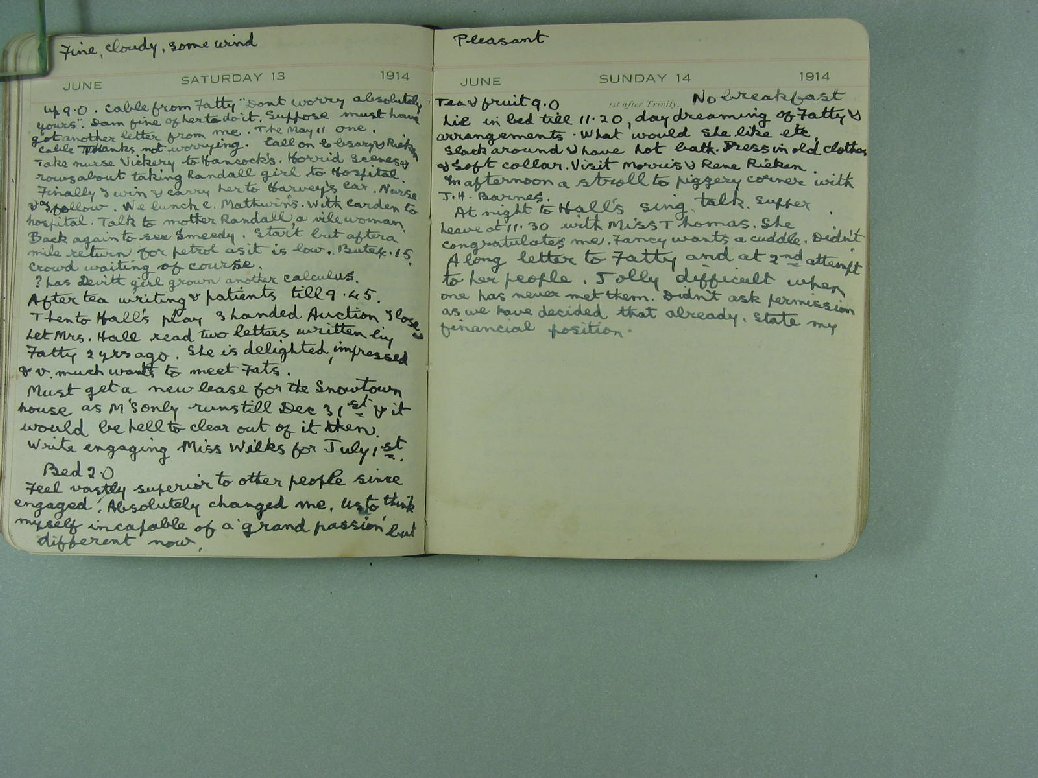 Fine, cloudy, some wind
JUNE SATURDAY 13 1914
Up 9.0. Cable from Fatty "Dont worry absolutely
yours". Dam fine of her to do it. Suppose must have
got another letter from me. The May 11 one.
Cable Thanks not worrying. Call on &
Take nurse Vickery to Hancock's. Horrid scenes &
rows about taking Randall girl to Hospital.
Finally I win & carry her to Harvey's car. Nurse
& I follow. We lunch c. Mathwin's. With Carden to
hospital. Talk to mother Randall, a vile woman.
Back again to see Smeedy. Start but after a
mile return for petrol as it is low. Bute 6.15.
crowd waiting of course.
? has Devitt girl grown another calculus.
After tea writing & patients till 9.45.
Then to Hall's play 3 handed Auction & lose
Let Mrs. Hall read two letters written by
Fatty 2 yrs ago. She is delighted, impressed
& v. much wants to meet Fats.
Must get a new lease for the Snowtown
house as M's only runs till Dec 31st & it
would be hell to clear out of it then.
Write engaging Miss Wilks for July 1st.
Bed 2.0
Feel vastly superior to other people since
engaged! Absolutely changed me. Us to think
myself incapable of a 'grand passion' but
different now.
Pleasant
JUNE SUNDAY 14 1914
1st after Trinity
Tea & fruit 9.0 No breakfast
Lie in bed till 11.20, day dreaming of Fatty &
arrangements. What would she like etc.
Slack around & have hot bath. Dress in old clothes
& soft collar. Visit Morris & Rene Ricken.
In afternoon a stroll to piggery corner with
J.H. Barnes.
At night to Hall's sing, talk. Supper.
Leave at 11.30 with Miss Thomas. She
congratulates me. Fancy wants a cuddle. Didn't
A long letter to Fatty and at 2nd attempt
to her people. Jolly difficult when
one has never met them. Didn't ask permission
as we have decided that already. State my
financial position.